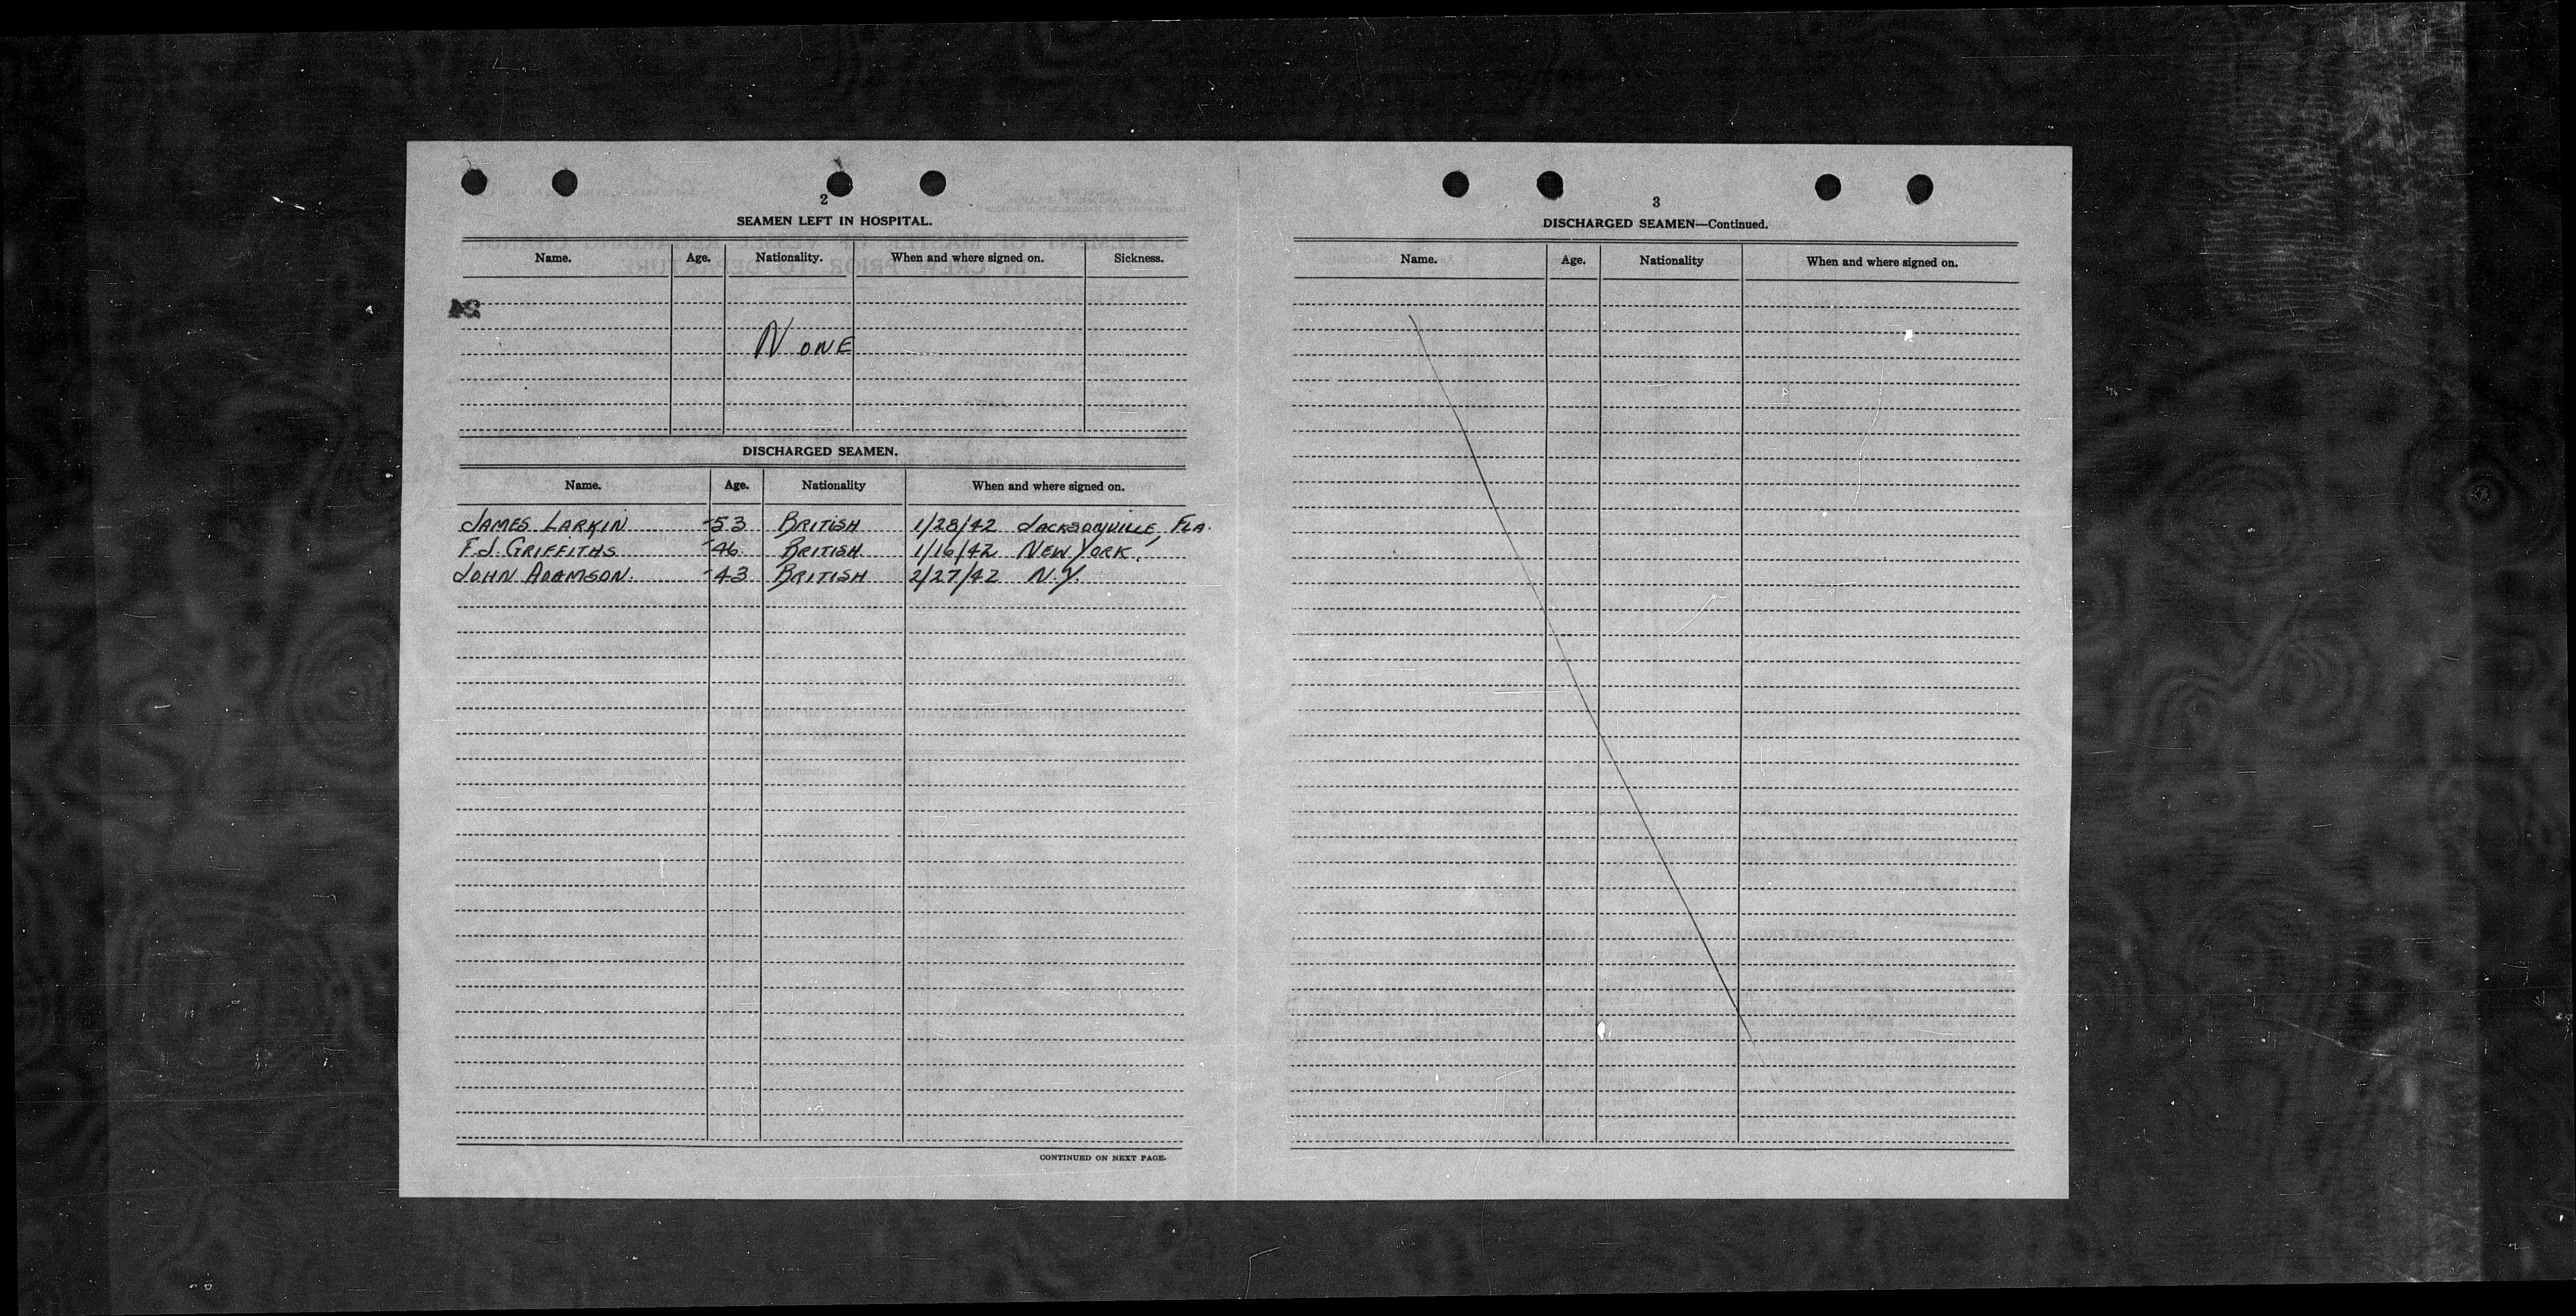 2
SEAMEN LEFT IN HOSPITAL.
Name. Age. Nationality. When and where signed on. Sickness.
NONE
DISCHARGED SEAMEN.
Name. Age. Nationality When and where signed on.
JAMES LARKIN 53 BRITISH 1/28/42 JACKSONVILLE, FLA.
F.J. GRIFFITHS 46 BRITISH 1/16/42 NEW YORK.
JOHN ADAMSON. 43 BRITISH 2/27/42 N.Y.
CONTINUED ON NEXT PAGE.
3
DISCHARGED SEAMEN—Continued.
Name. Age. Nationality When and where signed on.